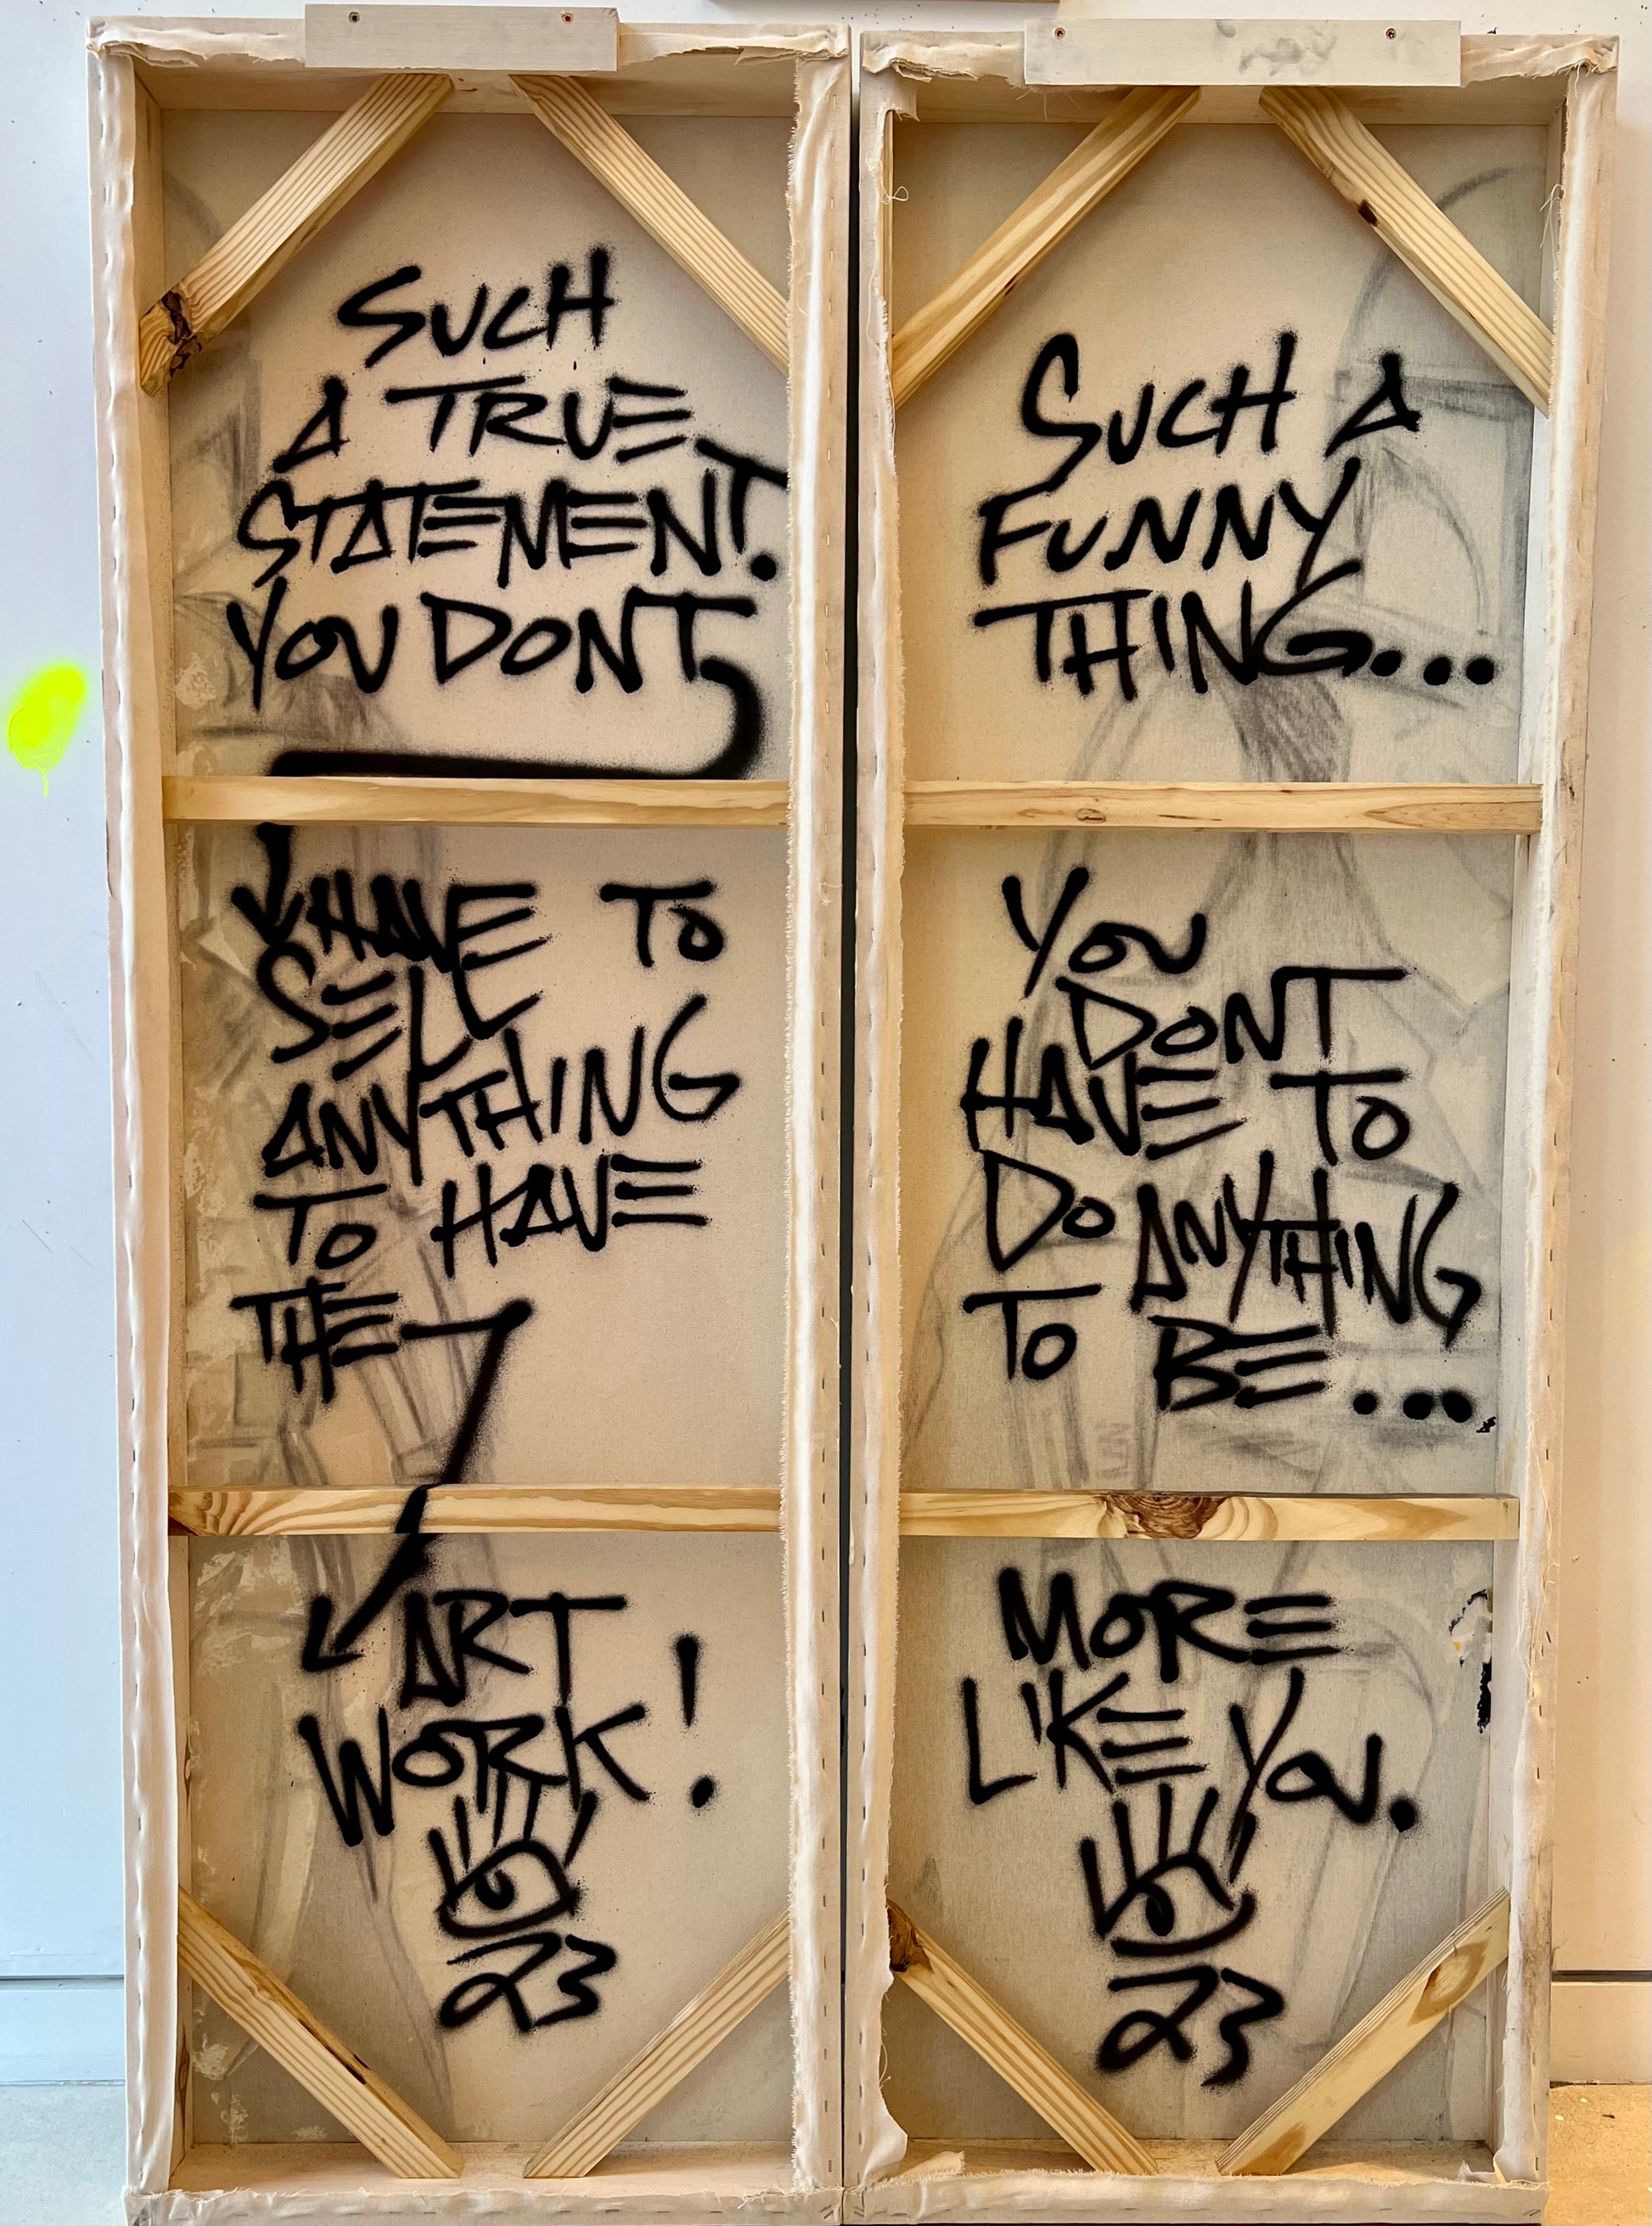 SUCH
A TRUE
STATEMENT.
YOU DONT
HAVE TO
SELL
ANYTHING
TO HAVE
THE
ART
WORK!
23
SUCH A
FUNNY
THING...
YOU
DONT
HAVE TO
DO ANYTHING
TO BE...
MORE
LIKE YOU.
23